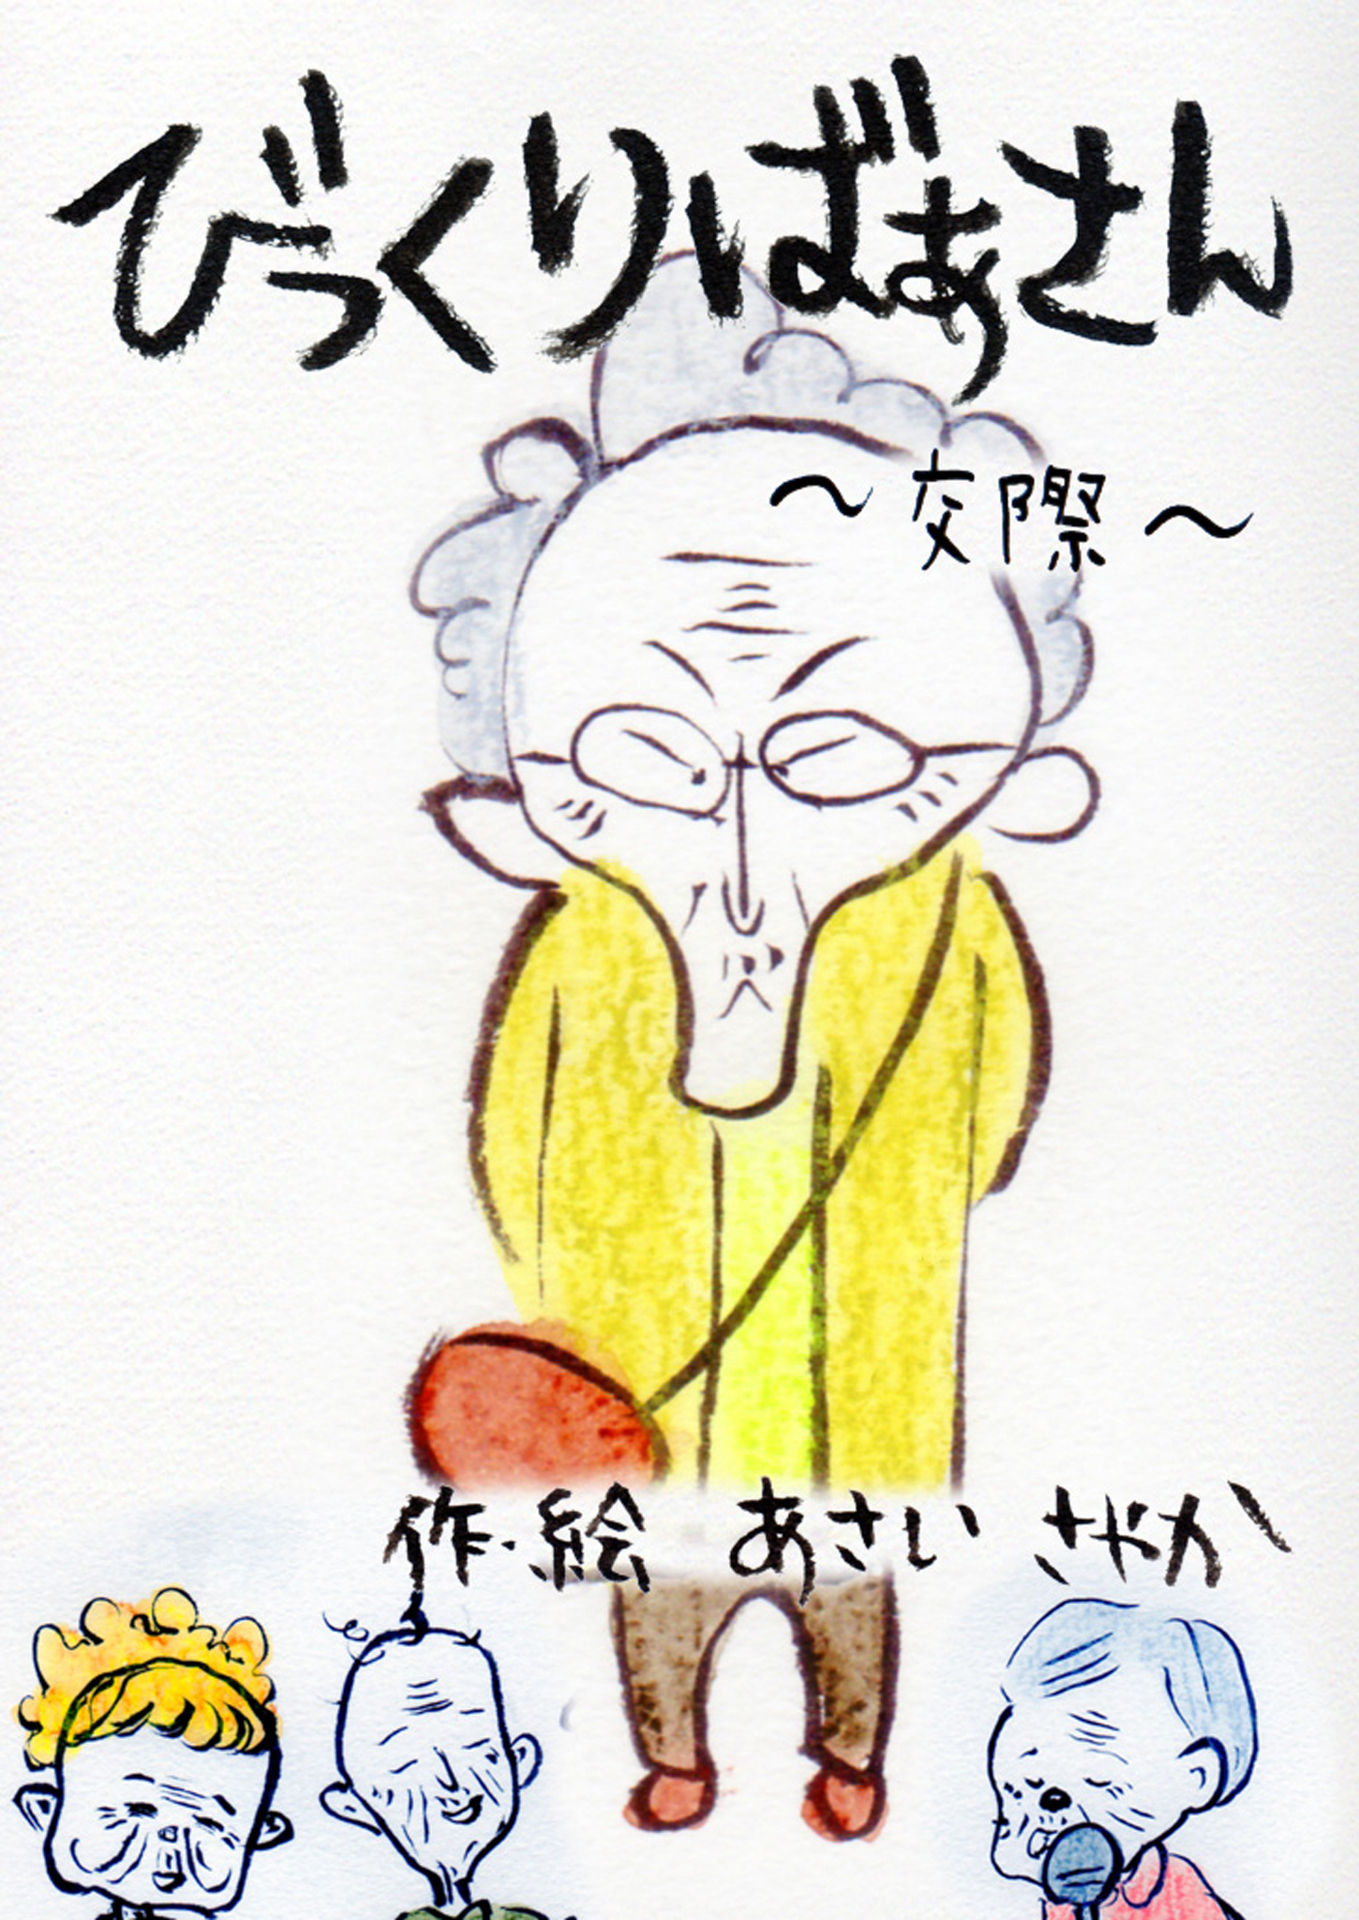 びっくりばぁさん
～交際～
作・絵 あさい さやか